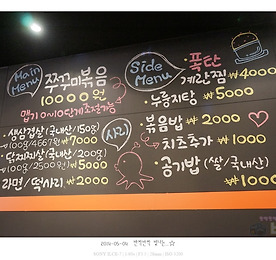 Main Menu
쭈꾸미볶음
10000원
맵기 0~10단계조절가능
사리
·생삼겹살(국내산/150g)
(100g/4667원) ₩7000
·단찌찌살(국내산/200g)
(100g/2500원) ₩5000
라면/떡사리 ·₩2000
Side Menu
폭탄
계란찜 ₩4000
·누룽지탕 ₩5000
볶음밥 ₩2000
치즈추가 ₩1000
·공기밥(쌀/국내산)
₩1000